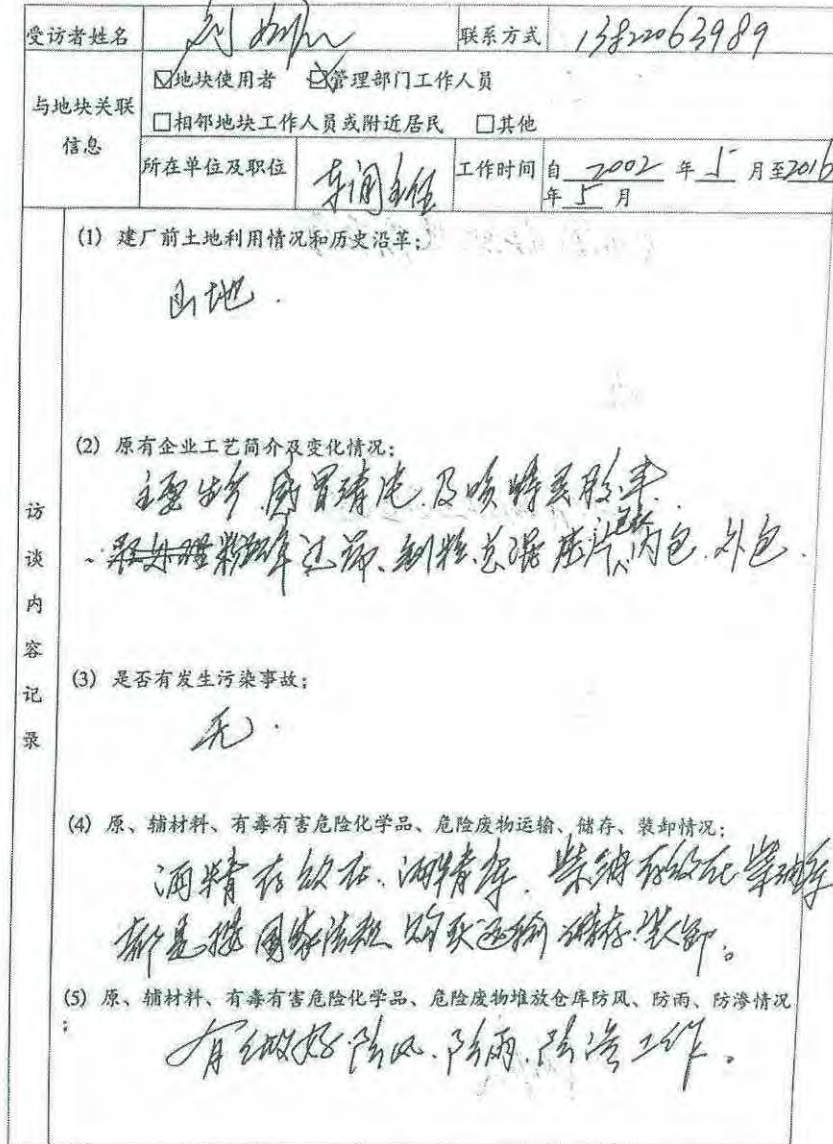 受访者姓名 刘 联系方式 13822063989
与地块关联信息
☑地块使用者 ☑管理部门工作人员
□相邻地块工作人员或附近居民 □其他
所在单位及职位 车间主任 工作时间 自 2002 年 5 月至2016
年 5 月
访谈内容记录
(1) 建厂前土地利用情况和历史沿革:
山地.
(2) 原有企业工艺简介及变化情况:
主要生产感冒清 及喷特灵胶
粉碎过筛、制粒、总混 压片 内包、外包.
(3) 是否有发生污染事故:
无.
(4) 原、辅材料、有毒有害危险化学品、危险废物运输、储存、装卸情况:
酒精存放在、酒精库. 柴油存放在柴油库
都是按国家法规 购买运输 储存.装卸。
(5) 原、辅材料、有毒有害危险化学品、危险废物堆放仓库防风、防雨、防渗情况
;
有做好防风、防雨、防渗工作。